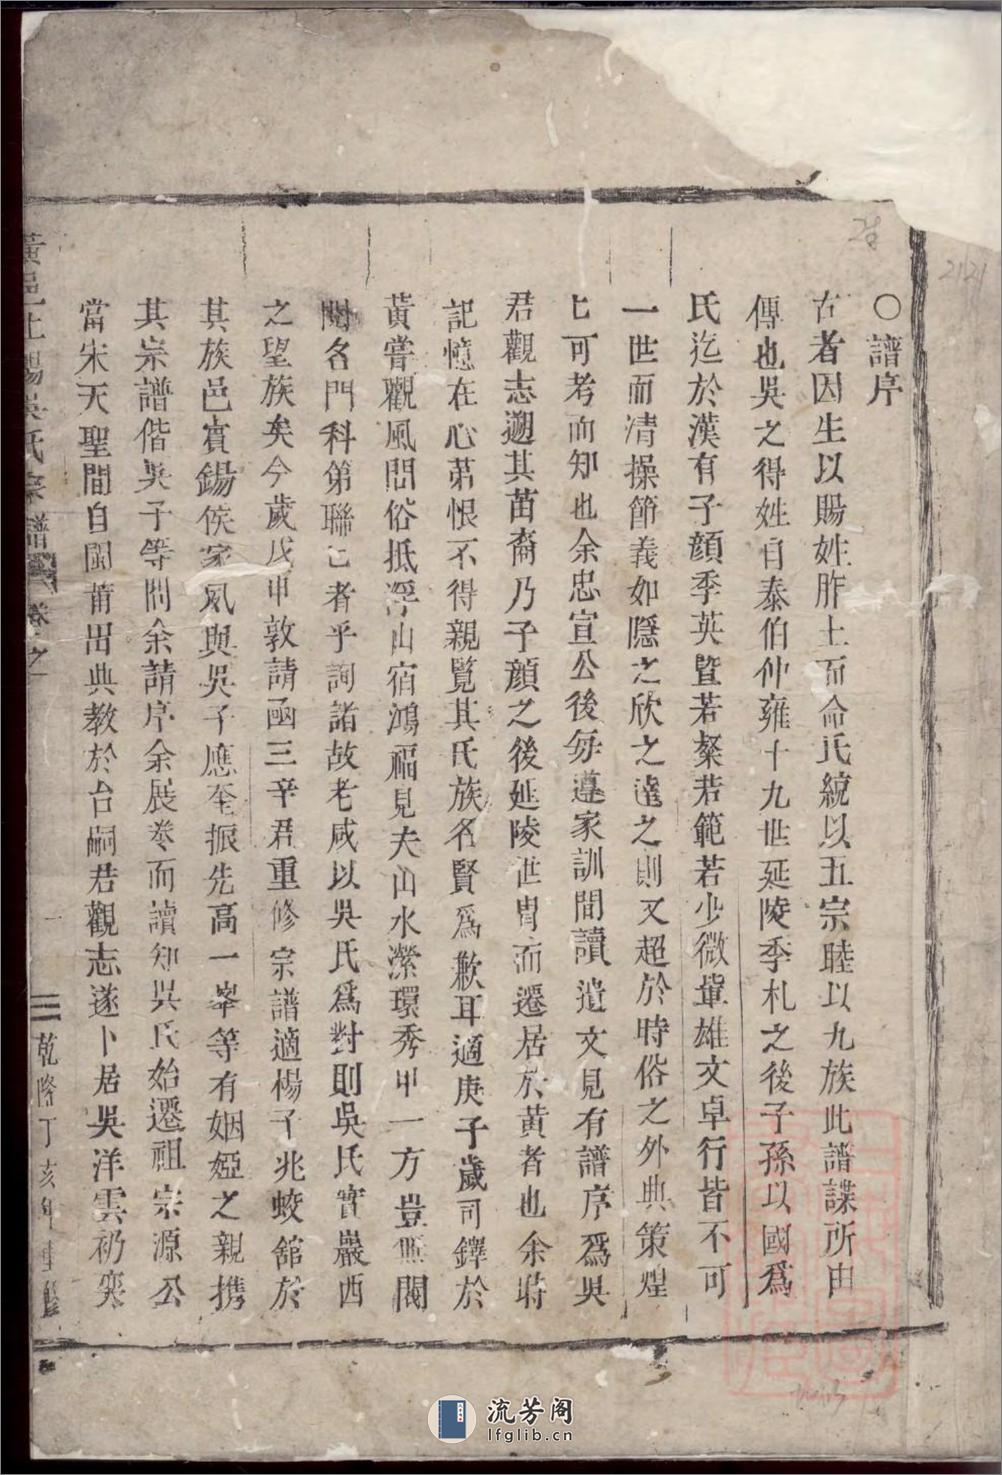 ○譜序
古者因生以賜姓胙土而命氏統以五宗睦以九族此譜諜所由
傳也吳之得姓自泰伯仲雍十九世延陵季札之後子孫以國為
氏迄於漢有子顔季英暨若粲若範若少微輩雄文卓行皆不可
一世而清操節義如隱之欣之逵之則又超於時俗之外典策煌
七可考而知也余忠宣公後每遵家訓間讀遺文見有譜序為吳
君觀志遡其苗裔乃子顔之後延陵世胄而遷居於黃者也余時
記憶在心苐恨不得親覽其氏族名賢爲歉耳適庚子歲司鐸於
黃嘗觀風問俗抵浮山宿鴻福見夫山水瀠環秀甲一方豈無閥
閱名門科第聯七者乎詢諸故老咸以吳氏爲對則吳氏實巖西
之望族矣今歲戊申敦請函三辛君重修宗譜適楊子兆蛟舘於
其族邑賓錫侯家夙與吳子應奎振先高一峯等有姻婭之親携
其宗譜偕吳子等問余請序余展卷而讀知吳氏始遷祖宗源公
當宋天聖間自閩莆出典教於台嗣君觀志遂卜居吳洋雲礽寔
黃邑上陽吳氏宗譜 卷之一
一
乾隆丁亥年重修
流芳阁
lfglib.cn